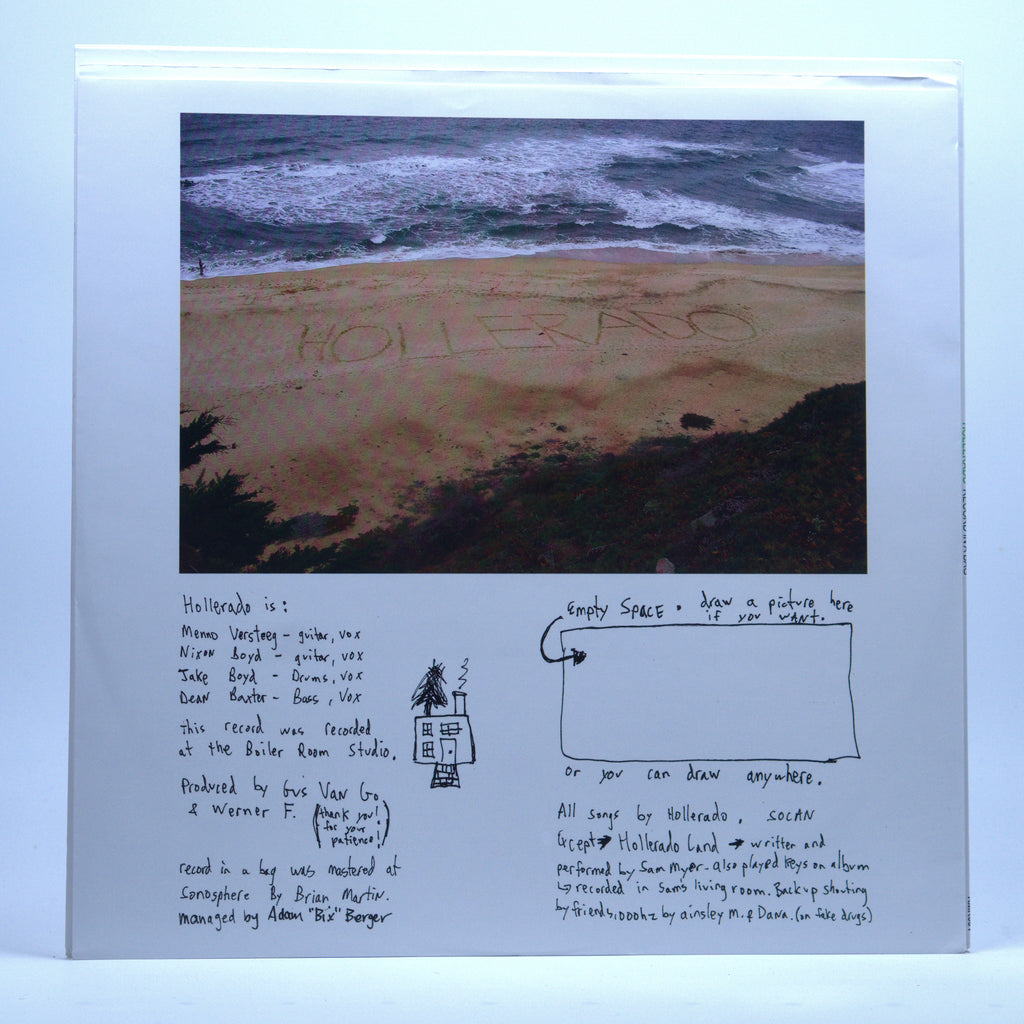 HOLLERADO
Hollerado is:
Menno Versteeg - guitar, vox
Nixon Boyd - guitar, vox
Jake Boyd - Drums, vox
Dean Baxter - Bass, vox
This record was recorded
at the Boiler Room Studio.
Produced by Gus Van Go
& Werner F. (thank you!
for your
patience!)
record in a bag was mastered at
Sonosphere By Brian Martin.
managed by Adam "Bix" Berger
Empty Space. draw a picture here
if you want.
or you can draw anywhere.
All songs by Hollerado. SOCAN
Except → Hollerado Land → written and
performed by Sam Myer - also played keys on album
↳ recorded in Sam's living room. Backup shouting
by friends, ooohz by ainsley M. & Dana. (on fake drugs)